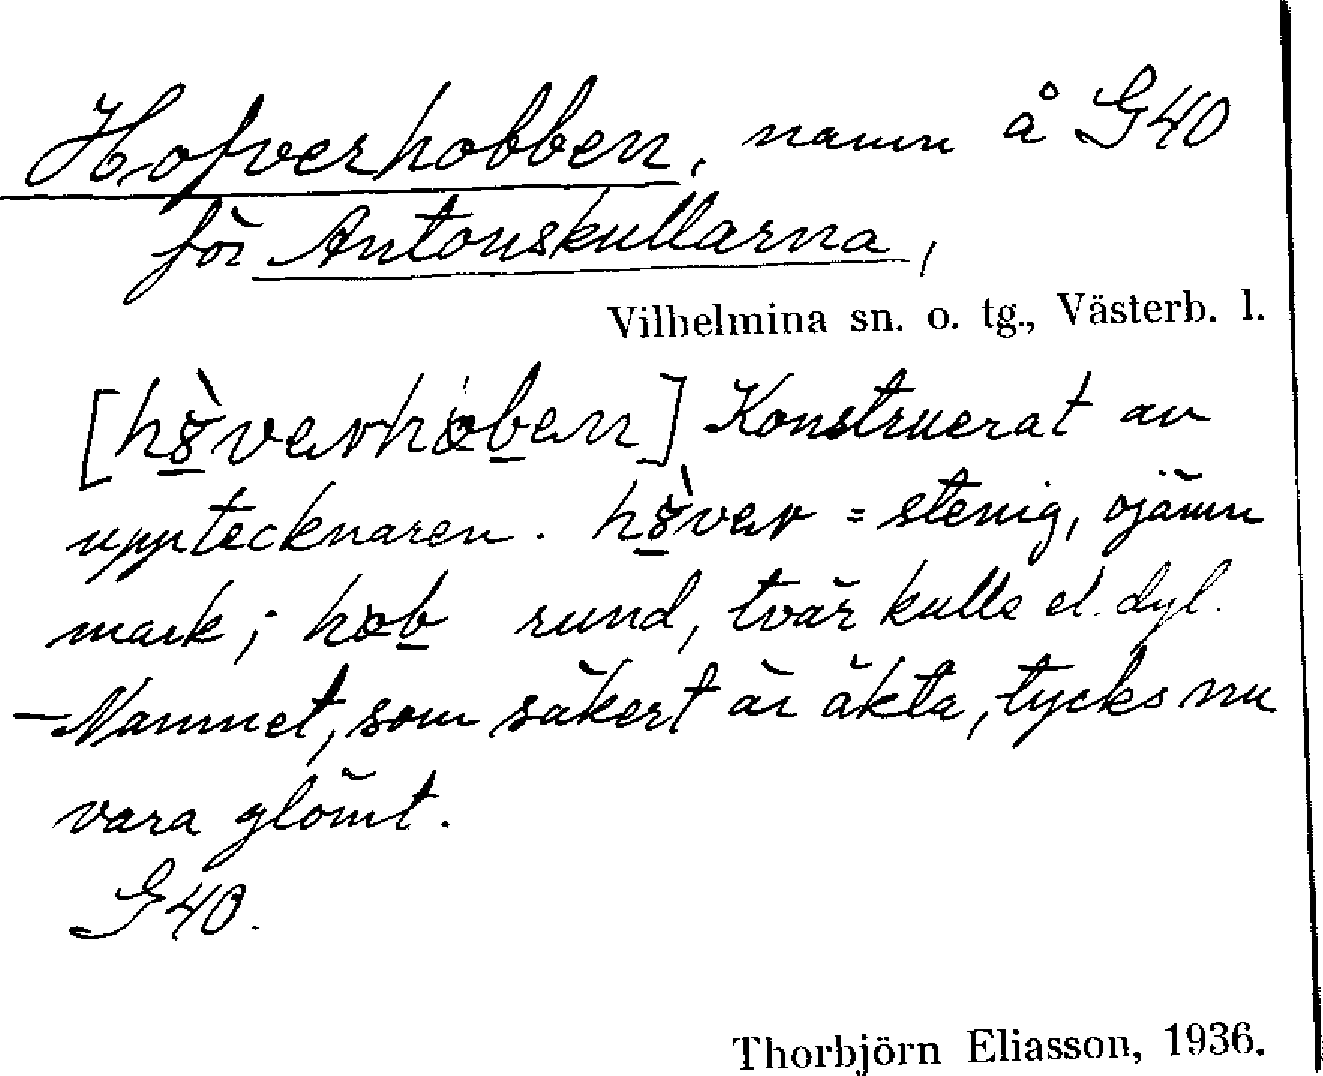 Hofverhobben, namn å G40
för Antonskullarna,
Vilhelmina sn. o. tg., Västerb. l.
Konstruerat av
upptecknaren. = stenig, ojämn
mark; rund, tvär kulle el. dyl.
– Namnet, som säkert är äkta, tycks nu
vara glömt.
G40.
Thorbjörn Eliasson, 1936.